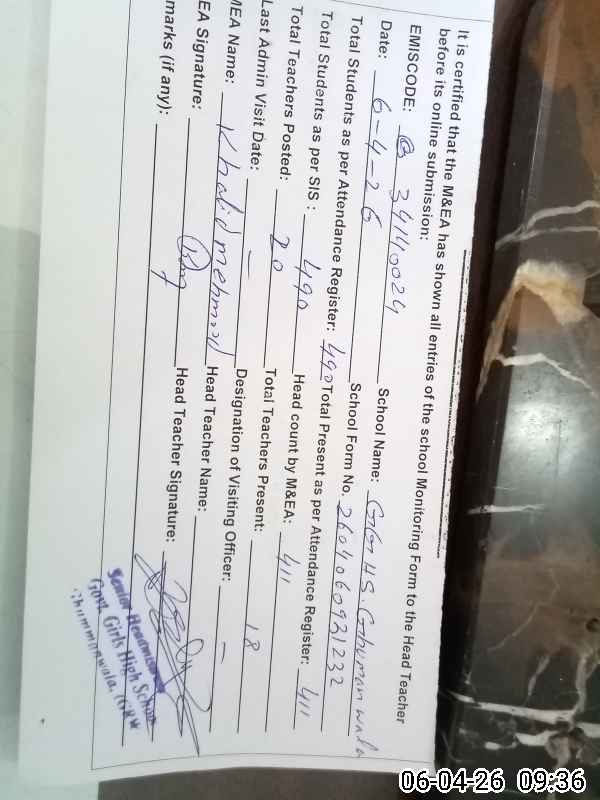 It is certified that the M&EA has shown all entries of the school Monitoring Form to the Head Teacher
before its online submission:
EMISCODE: 34140024 School Name: GGHS. Ghumanwala
Date: 6-4-26 School Form No. 2604060931232
Total Students as per Attendance Register: 490 Total Present as per Attendance Register: 411
Total Students as per SIS: 490 Head count by M&EA: 411
Total Teachers Posted: 20 Total Teachers Present: 18
Last Admin Visit Date: — Designation of Visiting Officer: —
MEA Name: Khalid mehmood Head Teacher Name:
EA Signature: Head Teacher Signature:
marks (if any):
Senior Headmistress
Govt. Girls High School
Ghummanwala,
06-04-26 09:36